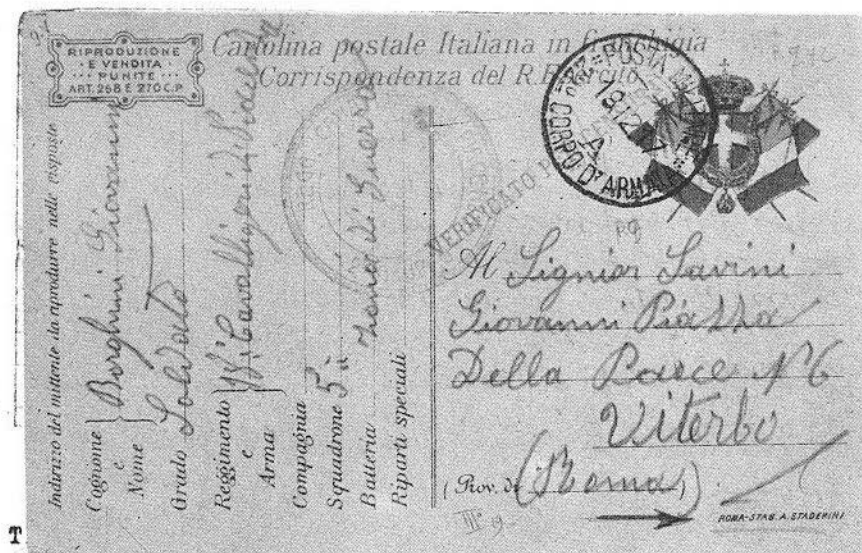 RIPRODUZIONE
E VENDITA
PUNITE
ART. 268 E 270 C.P.
Cartolina postale Italiana in franchigia
Corrispondenza del R. Esercito
POSTA MILITARE
18.12.17
A
CORPO D'ARMATA
VERIFICATO
Indirizzo del mittente da riprodurre nelle risposte
Cognome e Nome } Borghini Giovanni
Grado Soldato
Reggimento e Arma } Cavalligeri di
Compagnia
Squadrone 5º
Batteria Zona di Guerra
Riparti speciali
Al Signior Savini
Giovanni Piazza
Della Pace Nº 6
Viterbo
(Prov. di (Roma)
ROMA-STAB. A. STADERINI
T